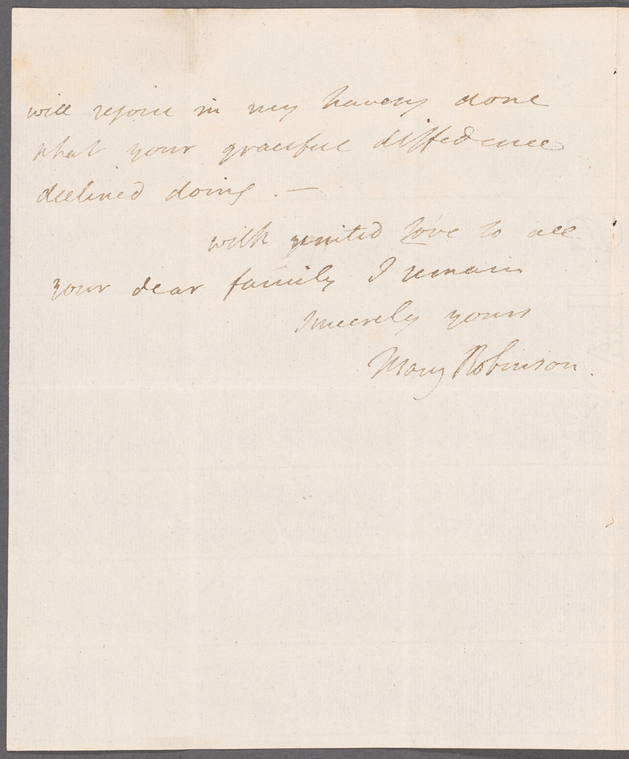 will rejoice in my having done
what your graceful diffidence
declined doing. —
with united love to all
your dear family I remain
sincerely yours
Mary Robinson.